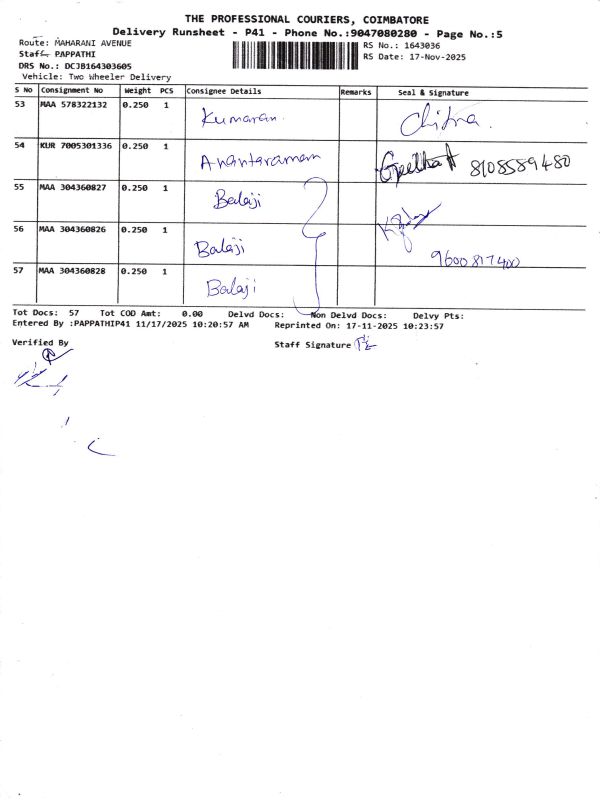 THE PROFESSIONAL COURIERS, COIMBATORE
Delivery Runsheet - P41 - Phone No.:9047080280 - Page No.:5
Route: MAHARANI AVENUE RS No.: 1643036
Staff: PAPPATHI RS Date: 17-Nov-2025
DRS No.: DCJB164303605
Vehicle: Two Wheeler Delivery
S No Consignment No Weight PCS Consignee Details Remarks Seal & Signature
53 MAA 578322132 0.250 1 Kumaran. Chitra.
54 KUR 7005301336 0.250 1 Anantaramam Geetha 8108589480
55 MAA 304360827 0.250 1 Balaji
56 MAA 304360826 0.250 1 Balaji 9600817400
57 MAA 304360828 0.250 1 Balaji
Tot Docs: 57 Tot COD Amt: 0.00 Delvd Docs: Non Delvd Docs: Delvy Pts:
Entered By :PAPPATHIP41 11/17/2025 10:20:57 AM Reprinted On: 17-11-2025 10:23:57
Verified By Staff Signature